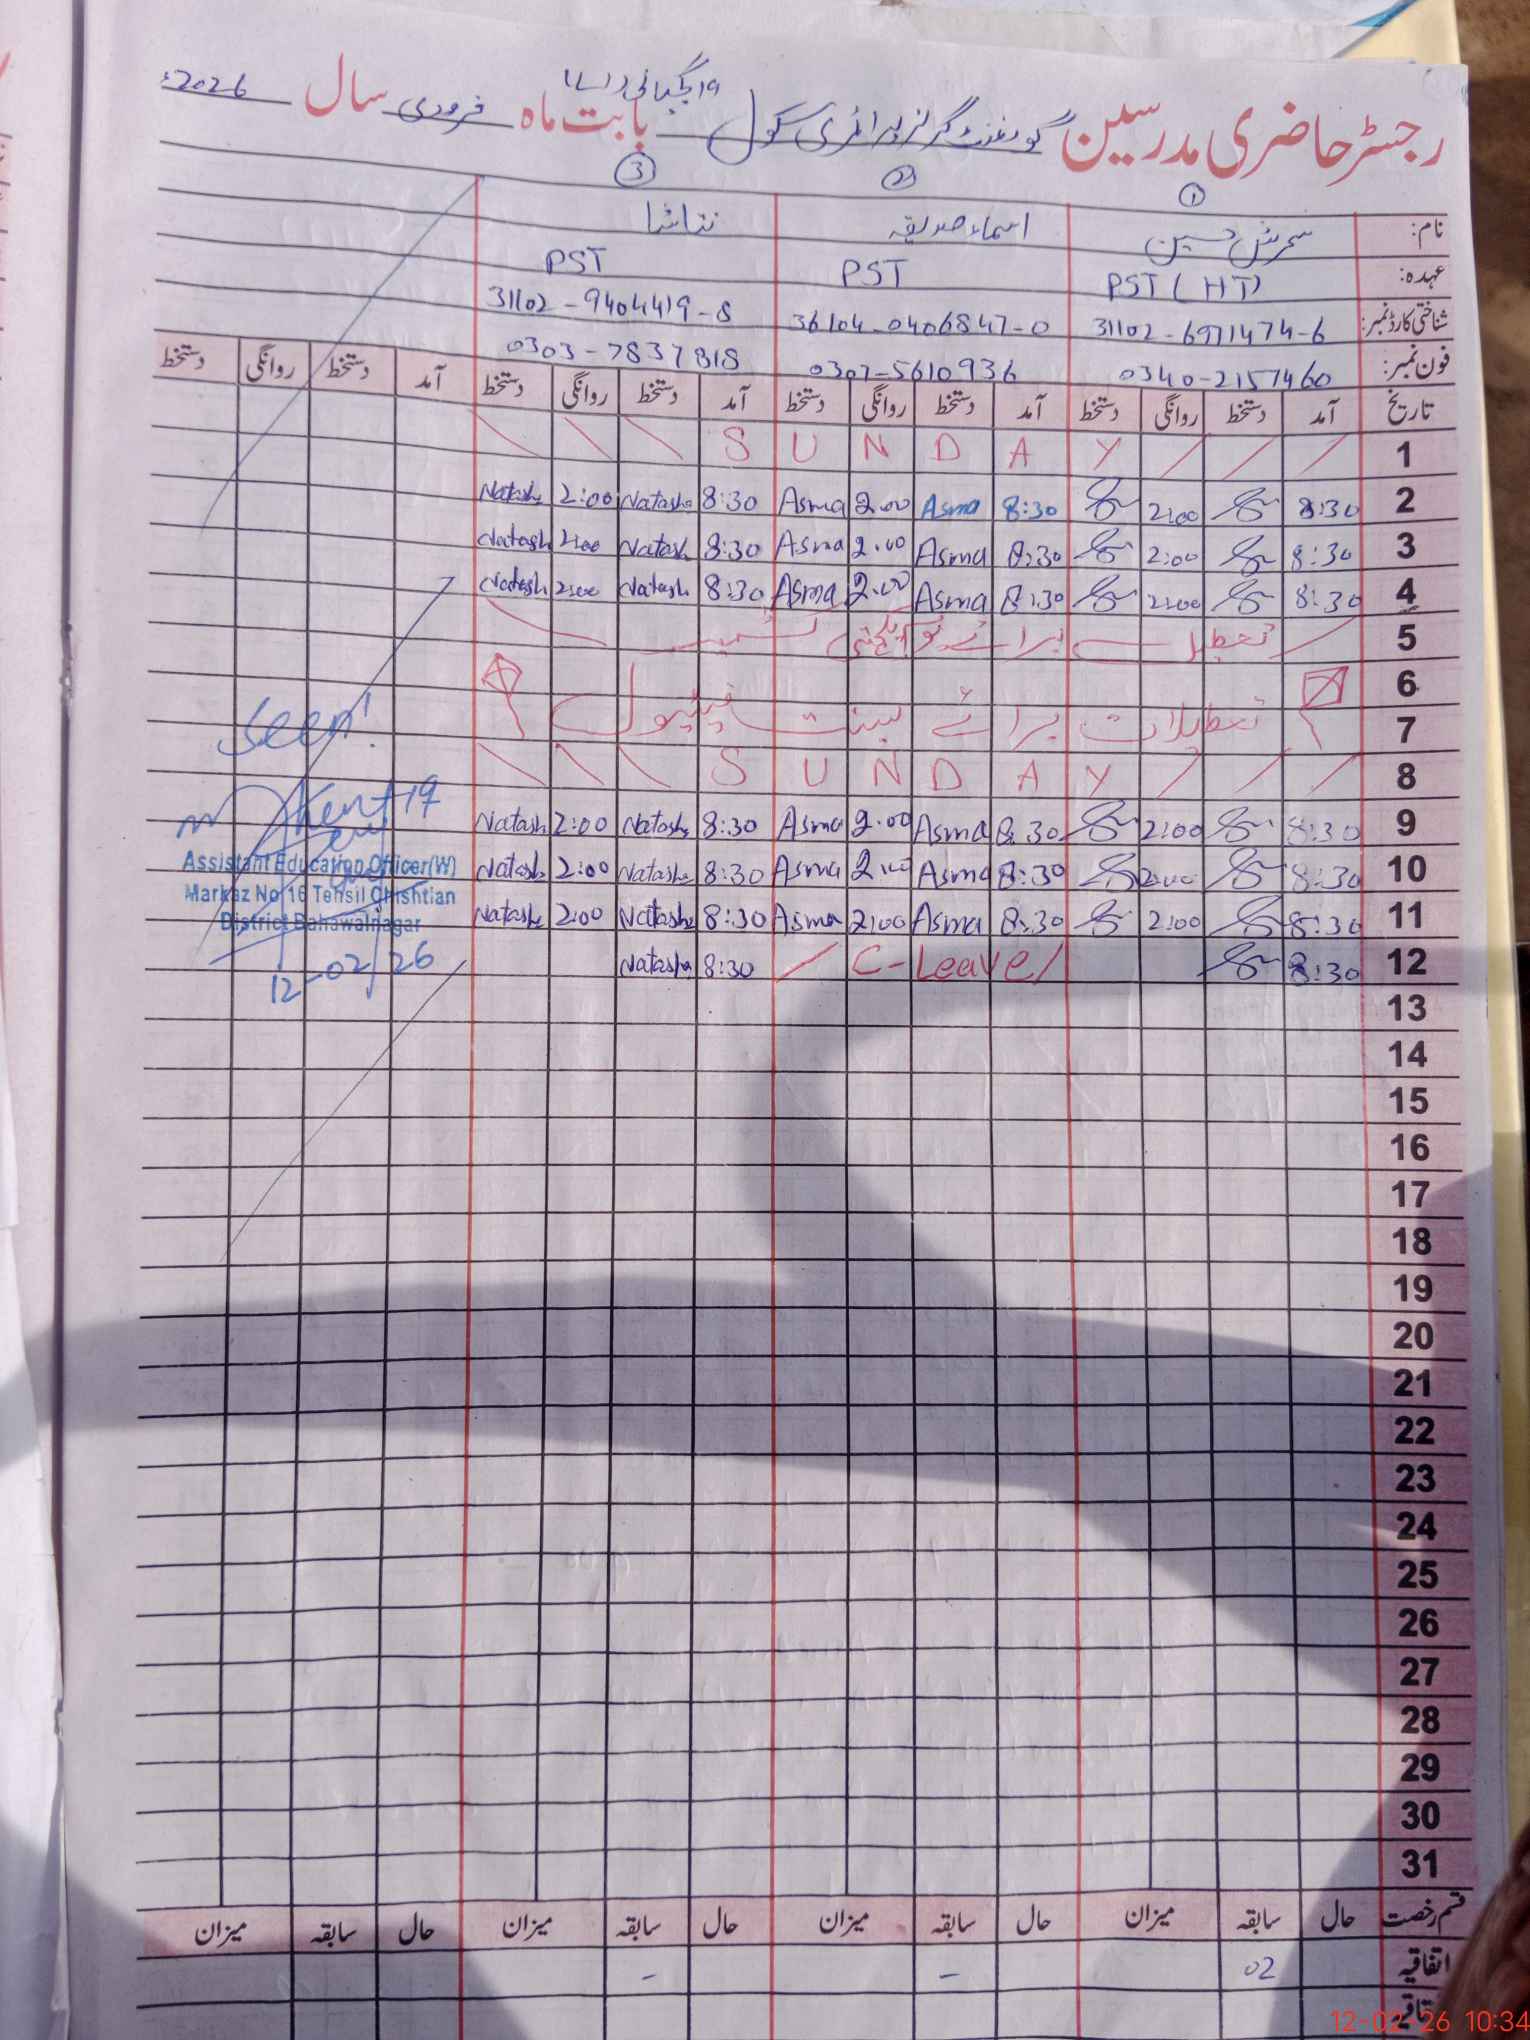 رجسٹر حاضری مدرسین گورنمنٹ گرلز پرائمری سکول بابت ماہ فروری سال 2026ء
① ② ③
نام: سحرش حسین اسماء صدیقہ نتاشا
عہدہ: PST (HT) PST PST
شناختی کارڈ نمبر: 31102-6971474-6 36104-0406847-0 31102-9404419-8
فون نمبر: 0340-2157460 0307-5610936 0303-7837818
تاریخ آمد دستخط روانگی دستخط آمد دستخط روانگی دستخط آمد دستخط روانگی دستخط آمد دستخط روانگی دستخط
S U N D A Y 1
Natasha 2:00 Natasha 8:30 Asma 2.00 Asma 8:30 2:00 8:30 2
Natash 2:00 Natash 8:30 Asma 2.00 Asma 8:30 2:00 8:30 3
Natash 2:00 Natash 8:30 Asma 2.00 Asma 8:30 2:00 8:30 4
5 تعطیل برائے یکجہتی کشمیر
6
7 تعطیلات برائے بسنت فیسٹیول
Seen!
S U N D A Y 8
Natash 2:00 Natasha 8:30 Asma 2.00 Asma 8:30 2:00 8:30 9
Natash 2:00 Natasha 8:30 Asma 2.00 Asma 8:30 2:00 8:30 10
Natasha 2:00 Natasha 8:30 Asma 2:00 Asma 8:30 2:00 8:30 11
Assistant Education Officer(W)
Markaz No 16 Tehsil Chishtian
District Bahawalnagar
12-02/26
Natasha 8:30 C-Leave 8:30 12
13
14
15
16
17
18
19
20
21
22
23
24
25
26
27
28
29
30
31
قسم رخصت حال سابقہ میزان حال سابقہ میزان حال سابقہ میزان حال سابقہ میزان
اتفاقیہ 02 - -
12-02-26 10:34